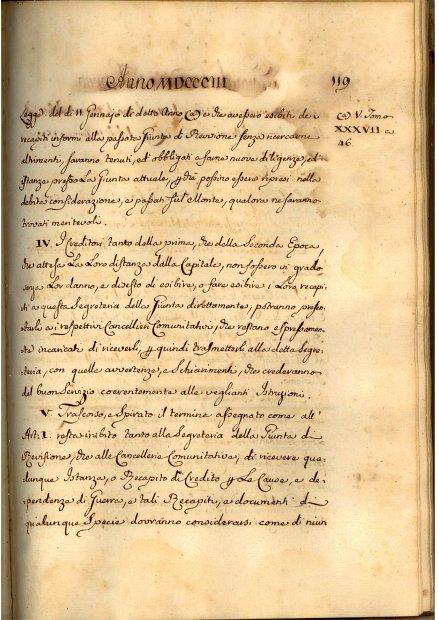 Anno MDCCCIII
119
Legge del dì 11 Gennajo di detto Anno (a) e che avessero esibiti dei
recapiti informi alla passata Giunta di Revisione senza ricercarne
altrimenti, saranno tenuti, ed obbligati a farne nuove diligenze, ed
Istanza presso La Giunta attuale, p che possino essere ripresi nella
debita considerazione, e passati sul Monte, qualora ne saranno
trovati meritevoli.
(a) V. Tomo
XXXVII a
46
IV. I Creditori tanto della prima, che della Seconda Epoca,
che attesa La Loro distanza dalla Capitale, non fosse vi grado
senza Lor danno, e disesto di esibire, o fare esibire i Loro recapi-
ti a questa Segreteria della Giunta direttamente, potranno presen-
tarli a i respettivi Cancellieri Comunitativi, che restano espressamen-
te incaricati di riceverli, p quindi trasmetterli alla detta Segre-
teria, con quelle avvertenze, e Schiarimenti, che crederanno
del buon Servizio coerentemente alle veglianti Istruzioni.
V. Trascorso, e Spirato il termine assegnato come all'
Art: I. resta inibito tanto alla Segreteria della Giunta di
Revisione, che alle Cancellerie Comunitative, di ricevere qua-
lunque Istanza, o Recapito di Credito p Le Cause, e de-
pendenze di Guerra, e tali Recapiti, e documenti di
qualunque Specie dovranno considerarsi come di niun